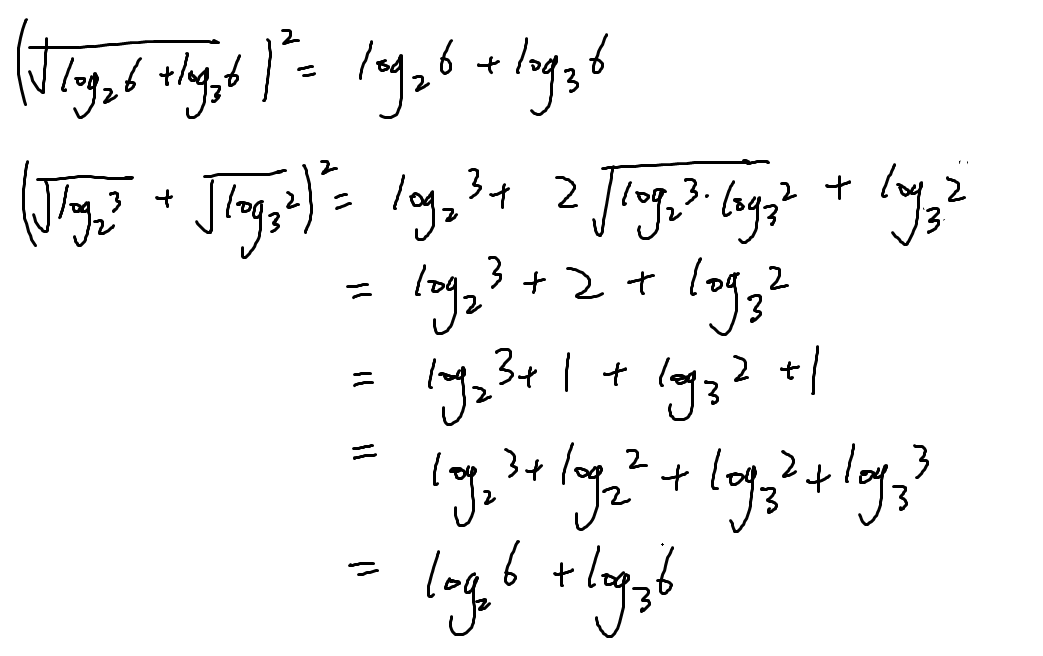 (√(log₂6 + log₃6))² = log₂6 + log₃6
(√(log₂3) + √(log₃2))² = log₂3 + 2√(log₂3 · log₃2) + log₃2
= log₂3 + 2 + log₃2
= log₂3 + 1 + log₃2 + 1
= log₂3 + log₂2 + log₃2 + log₃3
= log₂6 + log₃6